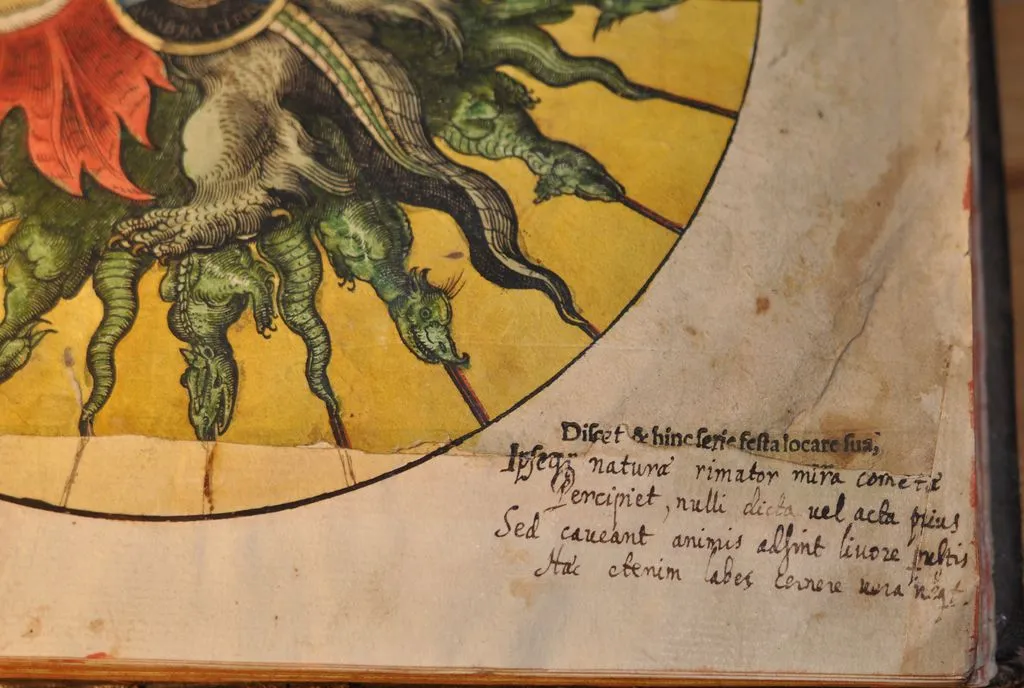 UMBRA TERRÆ
Discet & hinc serie festa locare sua,
Ipseqꝫ naturæ rimator mira cometæ
Percipiet, nulli dicta vel acta prius
Sed caveant animis adsint livore
Hac etenim labes cernere vera neqt.